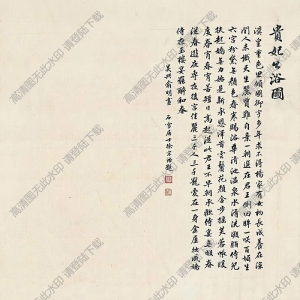 貴妃出浴圖
漢皇重色思傾國御宇多年求不得楊家有女初長成養在深
閨人未識天生麗質難自棄一朝選在君王側回眸一笑百媚生
六宮粉黛無顏色春寒賜浴華清池溫泉水滑洗凝脂侍兒
扶起嬌無力始是新承恩澤時雲鬢花顏金步搖芙蓉帳暖
度春宵春宵苦短日高起從此君王不早朝承歡侍宴
春從春遊夜專夜後宮佳麗三千人三千寵愛在一身金屋妝成嬌
侍夜玉樓宴罷醉和春
吳興俞明畫 石雪居士徐宗浩題
高清图无此水印